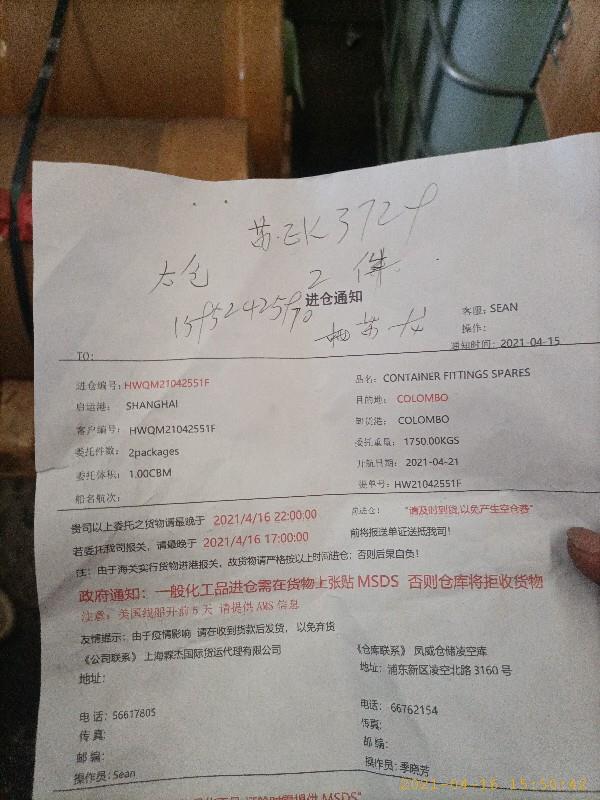 苏·EK3729
太仓 2件
进仓通知
客服：SEAN
操作：
通知时间：2021-04-15
TO：
进仓编号：HWQM21042551F 品名：CONTAINER FITTINGS SPARES
启运港： SHANGHAI 目的地： COLOMBO
客户编号： HWQM21042551F 卸货港： COLOMBO
委托件数： 2packages 委托重量： 1750.00KGS
委托体积： 1.00CBM 开航日期： 2021-04-21
船名航次： 提单号：HW21042551F
贵司以上委托之货物请最晚于 2021/4/16 22:00:00 前进仓！ "请及时到货,以免产生空仓费"
若委托我司报关，请最晚于 2021/4/16 17:00:00 前将报送单证送抵我司！
注：由于海关实行货物进港报关，故货物请严格按以上时间进仓；否则后果自负！
政府通知：一般化工品进仓需在货物上张贴 MSDS 否则仓库将拒收货物
注意：美国线船开前5天 请提供 AMS 信息
友情提示：由于疫情影响 请在收到货款后发货，以免弃货
《公司联系》上海霖杰国际货运代理有限公司 《仓库联系》 凤威仓储凌空库
地址： 地址：浦东新区凌空北路3160号
电话：56617805 电话： 66762154
传真： 传真：
邮编： 邮编：
操作员：Sean 操作员：季晓芳
2021-04-16 15:50:42